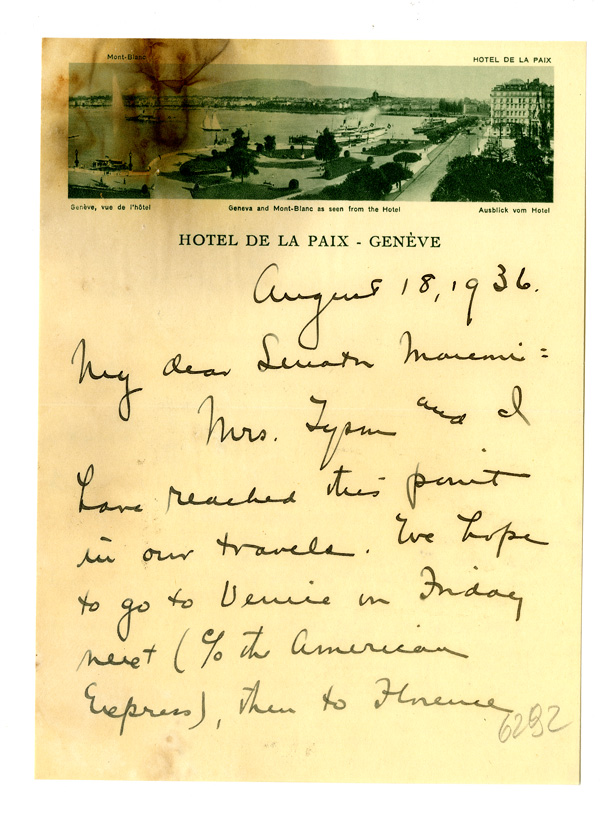 Mont-Blanc
HOTEL DE LA PAIX
Genève, vue de l'hôtel
Geneva and Mont-Blanc as seen from the Hotel
Ausblick vom Hotel
HOTEL DE LA PAIX - GENÈVE
August 18, 1936.
My dear Senator Marconi =
Mrs. Tyson and I
have reached this point
in our travels. We hope
to go to Venice on Friday
next (c/o the American
Express), then to Florence
6292